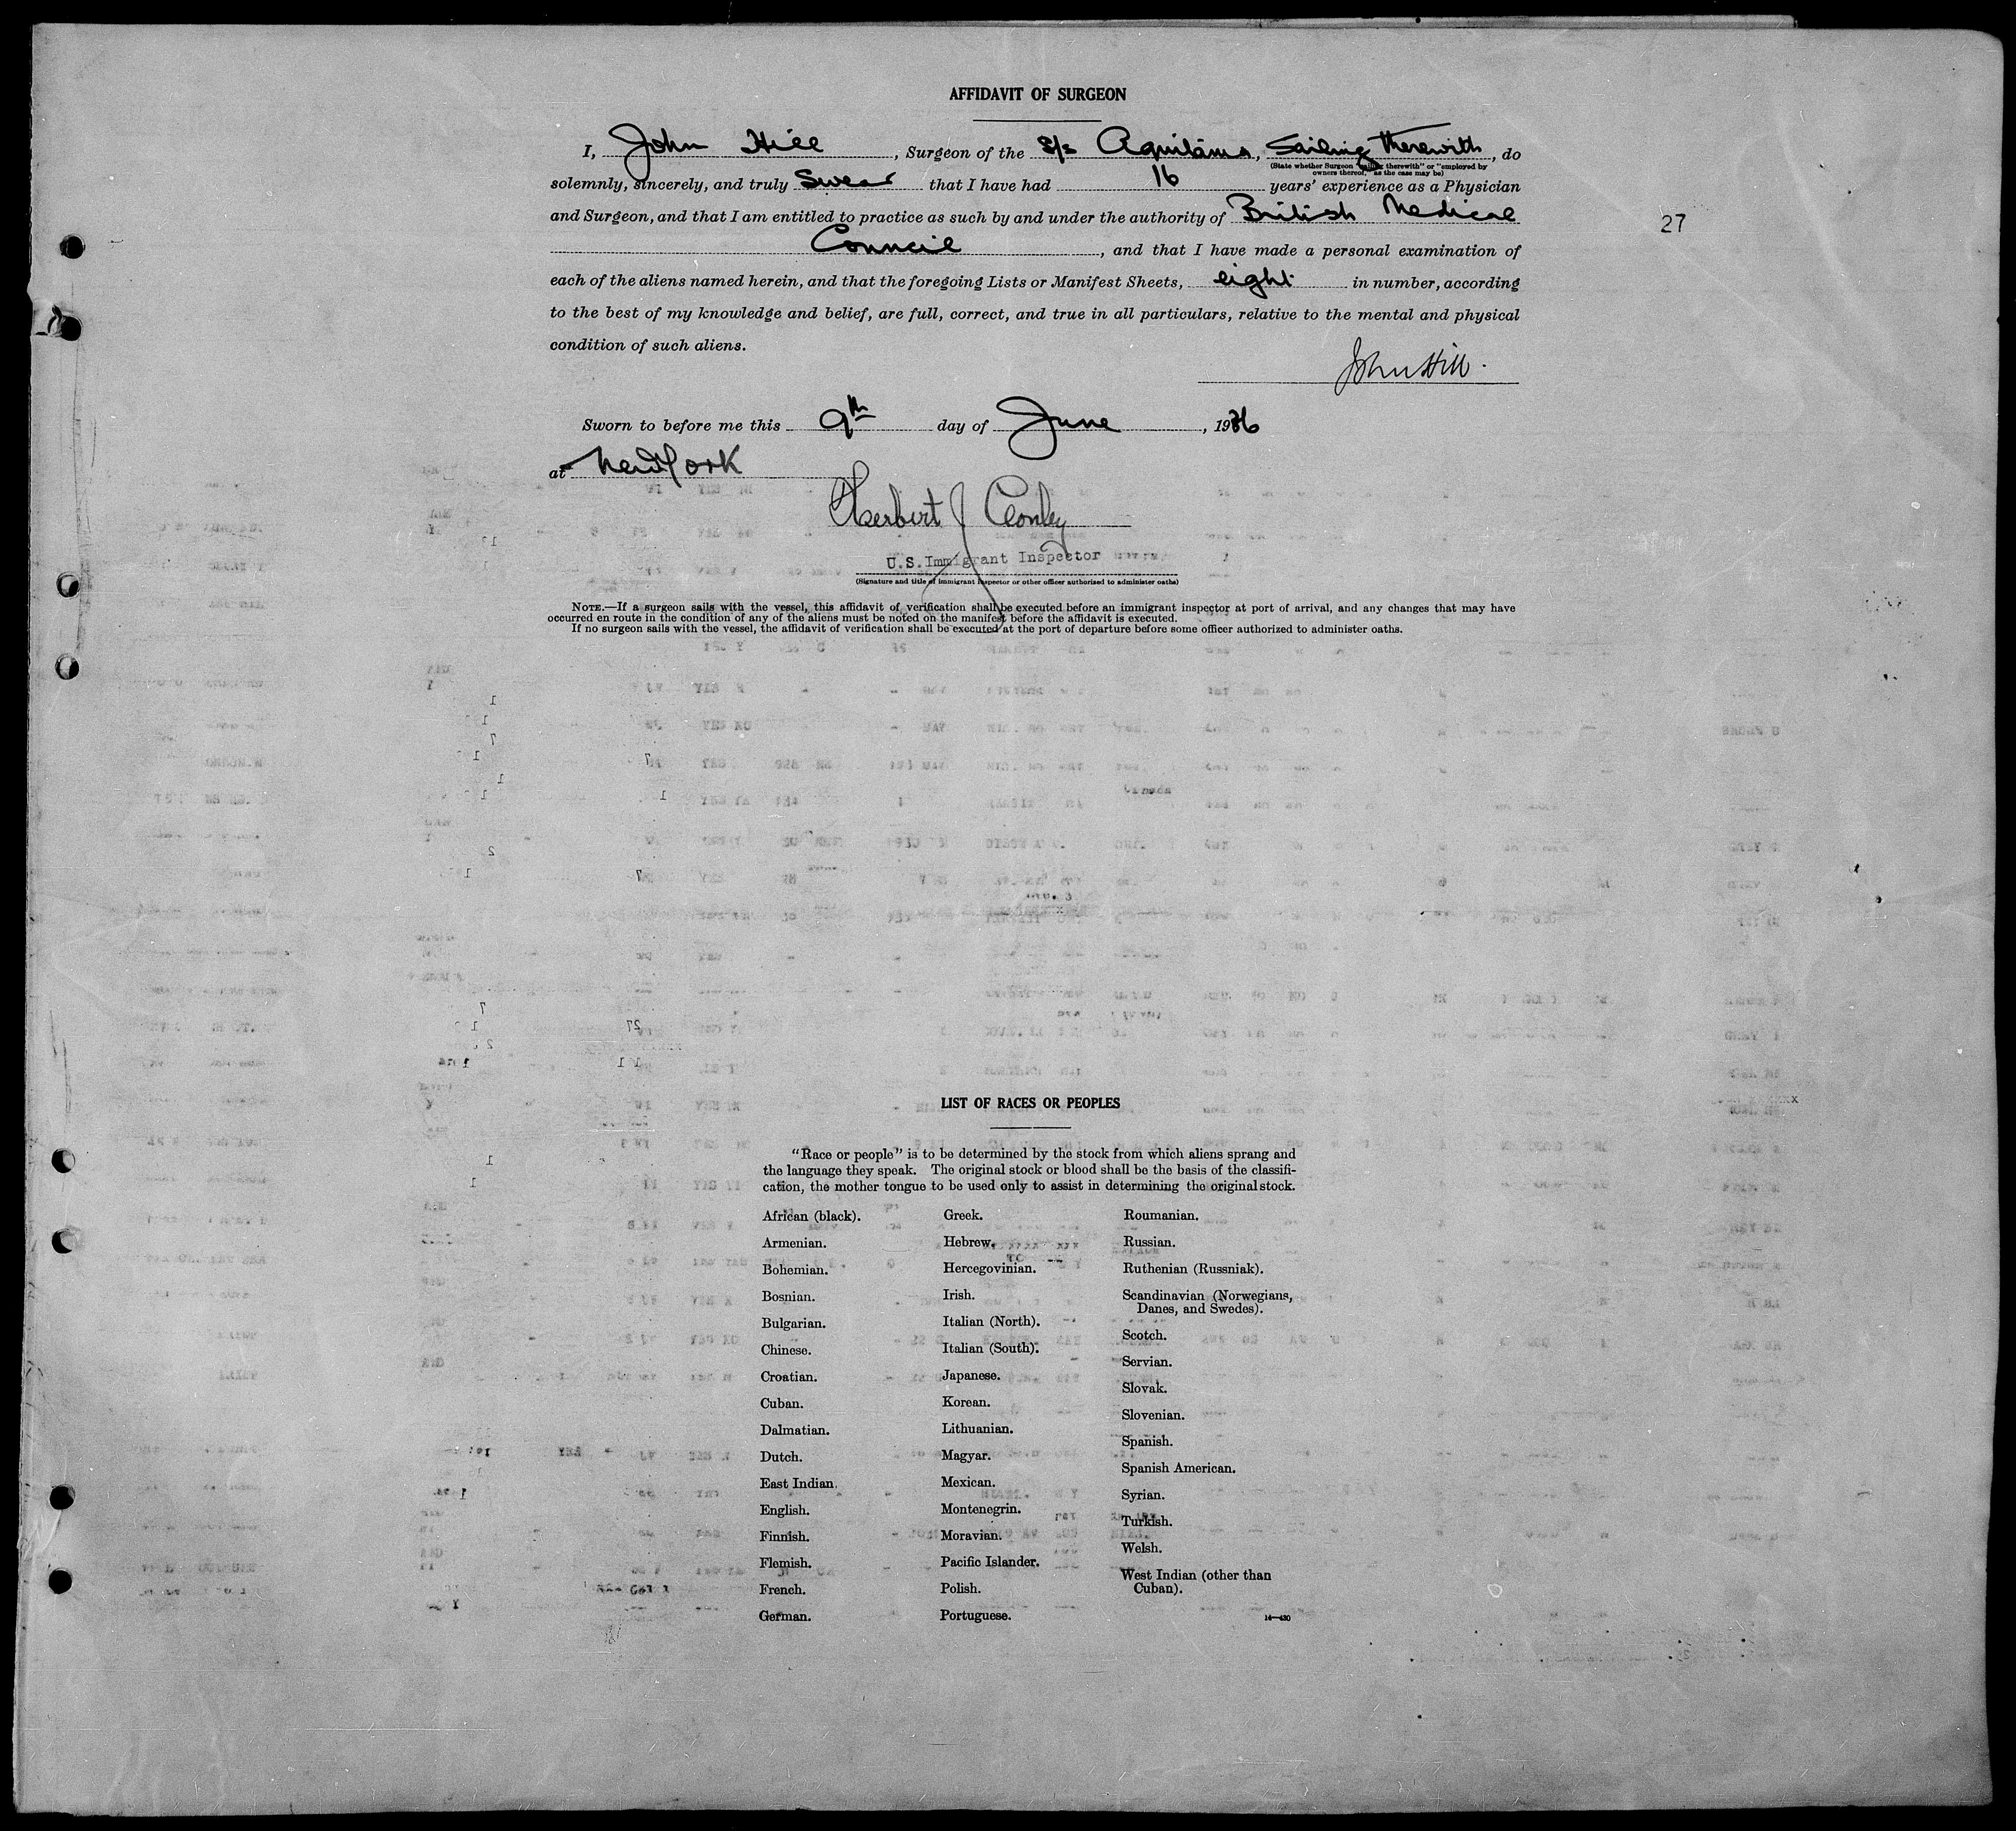 AFFIDAVIT OF SURGEON
I, John Hill, Surgeon of the S/s Aquitania, Sailing therewith, do
(State whether Surgeon "sailing therewith" or "employed by
owners thereof," as the case may be)
solemnly, sincerely, and truly Swear that I have had 16 years' experience as a Physician
and Surgeon, and that I am entitled to practice as such by and under the authority of British Medical
27
Council, and that I have made a personal examination of
each of the aliens named herein, and that the foregoing Lists or Manifest Sheets, eight in number, according
to the best of my knowledge and belief, are full, correct, and true in all particulars, relative to the mental and physical
condition of such aliens.
John Hill.
Sworn to before me this 9th day of June, 1936
at New York
Herbert J Conley
U.S. Immigrant Inspector
(Signature and title of immigrant inspector or other officer authorized to administer oaths)
NOTE.—If a surgeon sails with the vessel, this affidavit of verification shall be executed before an immigrant inspector at port of arrival, and any changes that may have
occurred en route in the condition of any of the aliens must be noted on the manifest before the affidavit is executed.
If no surgeon sails with the vessel, the affidavit of verification shall be executed at the port of departure before some officer authorized to administer oaths.
LIST OF RACES OR PEOPLES
"Race or people" is to be determined by the stock from which aliens sprang and
the language they speak. The original stock or blood shall be the basis of the classifi-
cation, the mother tongue to be used only to assist in determining the original stock.
African (black).
Armenian.
Bohemian.
Bosnian.
Bulgarian.
Chinese.
Croatian.
Cuban.
Dalmatian.
Dutch.
East Indian.
English.
Finnish.
Flemish.
French.
German.
Greek.
Hebrew.
Hercegovinian.
Irish.
Italian (North).
Italian (South).
Japanese.
Korean.
Lithuanian.
Magyar.
Mexican.
Montenegrin.
Moravian.
Pacific Islander.
Polish.
Portuguese.
Roumanian.
Russian.
Ruthenian (Russniak).
Scandinavian (Norwegians,
Danes, and Swedes).
Scotch.
Servian.
Slovak.
Slovenian.
Spanish.
Spanish American.
Syrian.
Turkish.
Welsh.
West Indian (other than
Cuban).
14—430